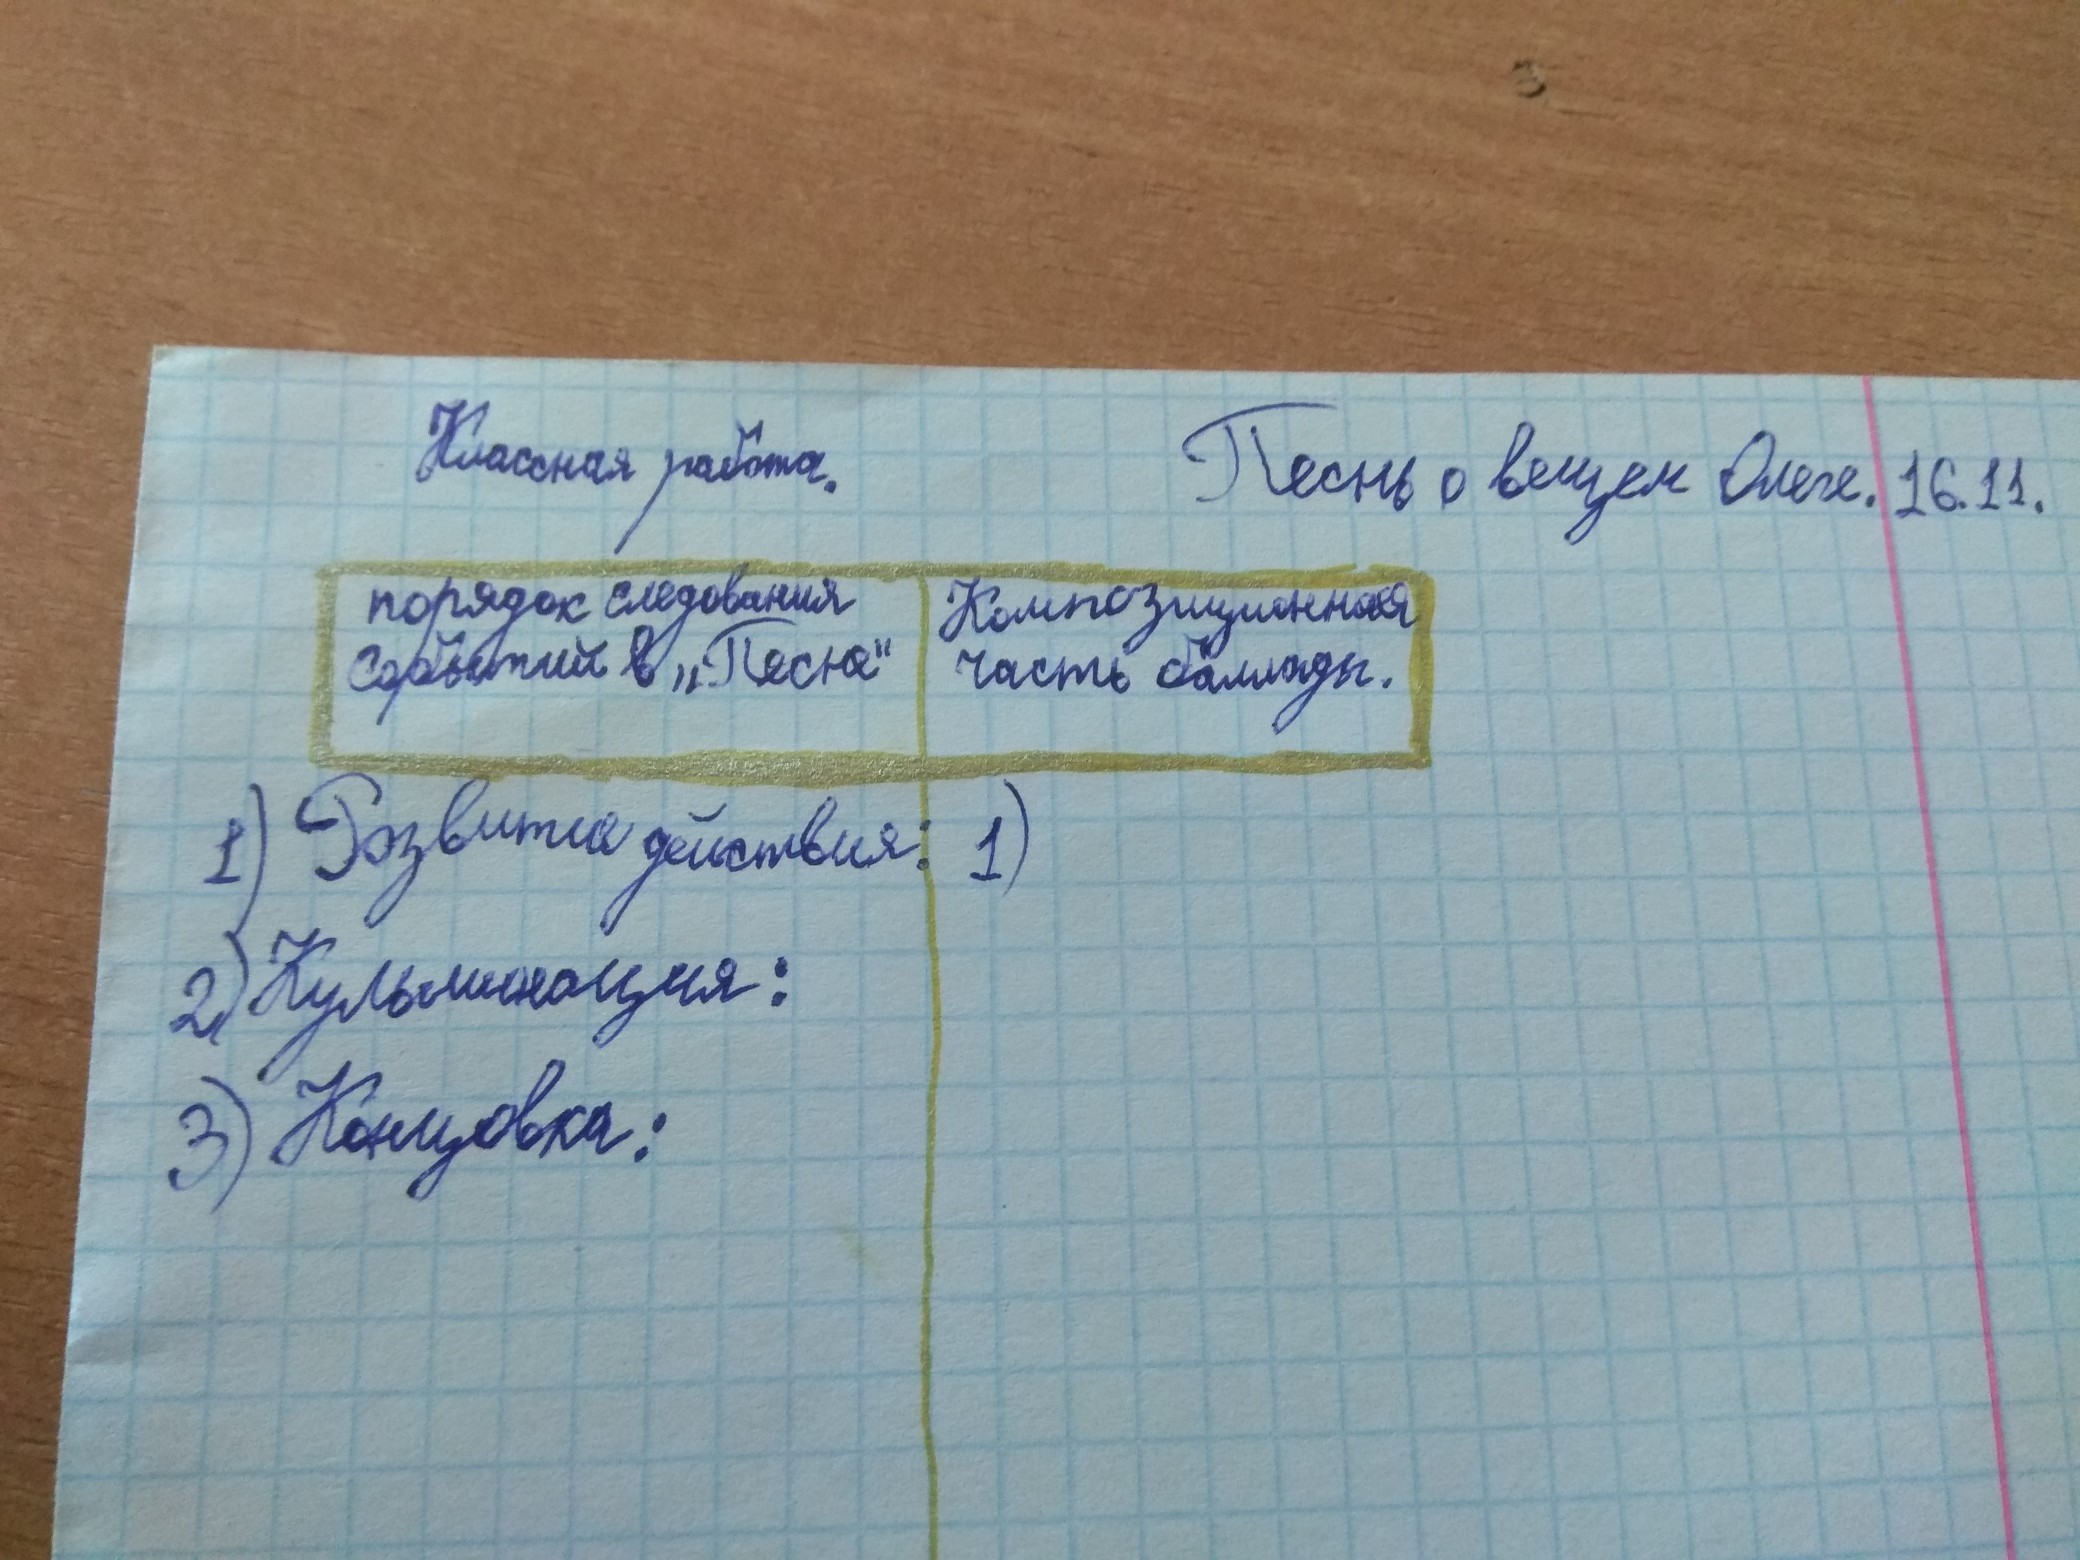 Классная работа.
Песнь о вещем Олеге. 16.11.
порядок следования
событий в „Песне"
Композиционная
часть баллады.
1) Розвитие действия:
1)
2) Кульминация:
3) Концовка: